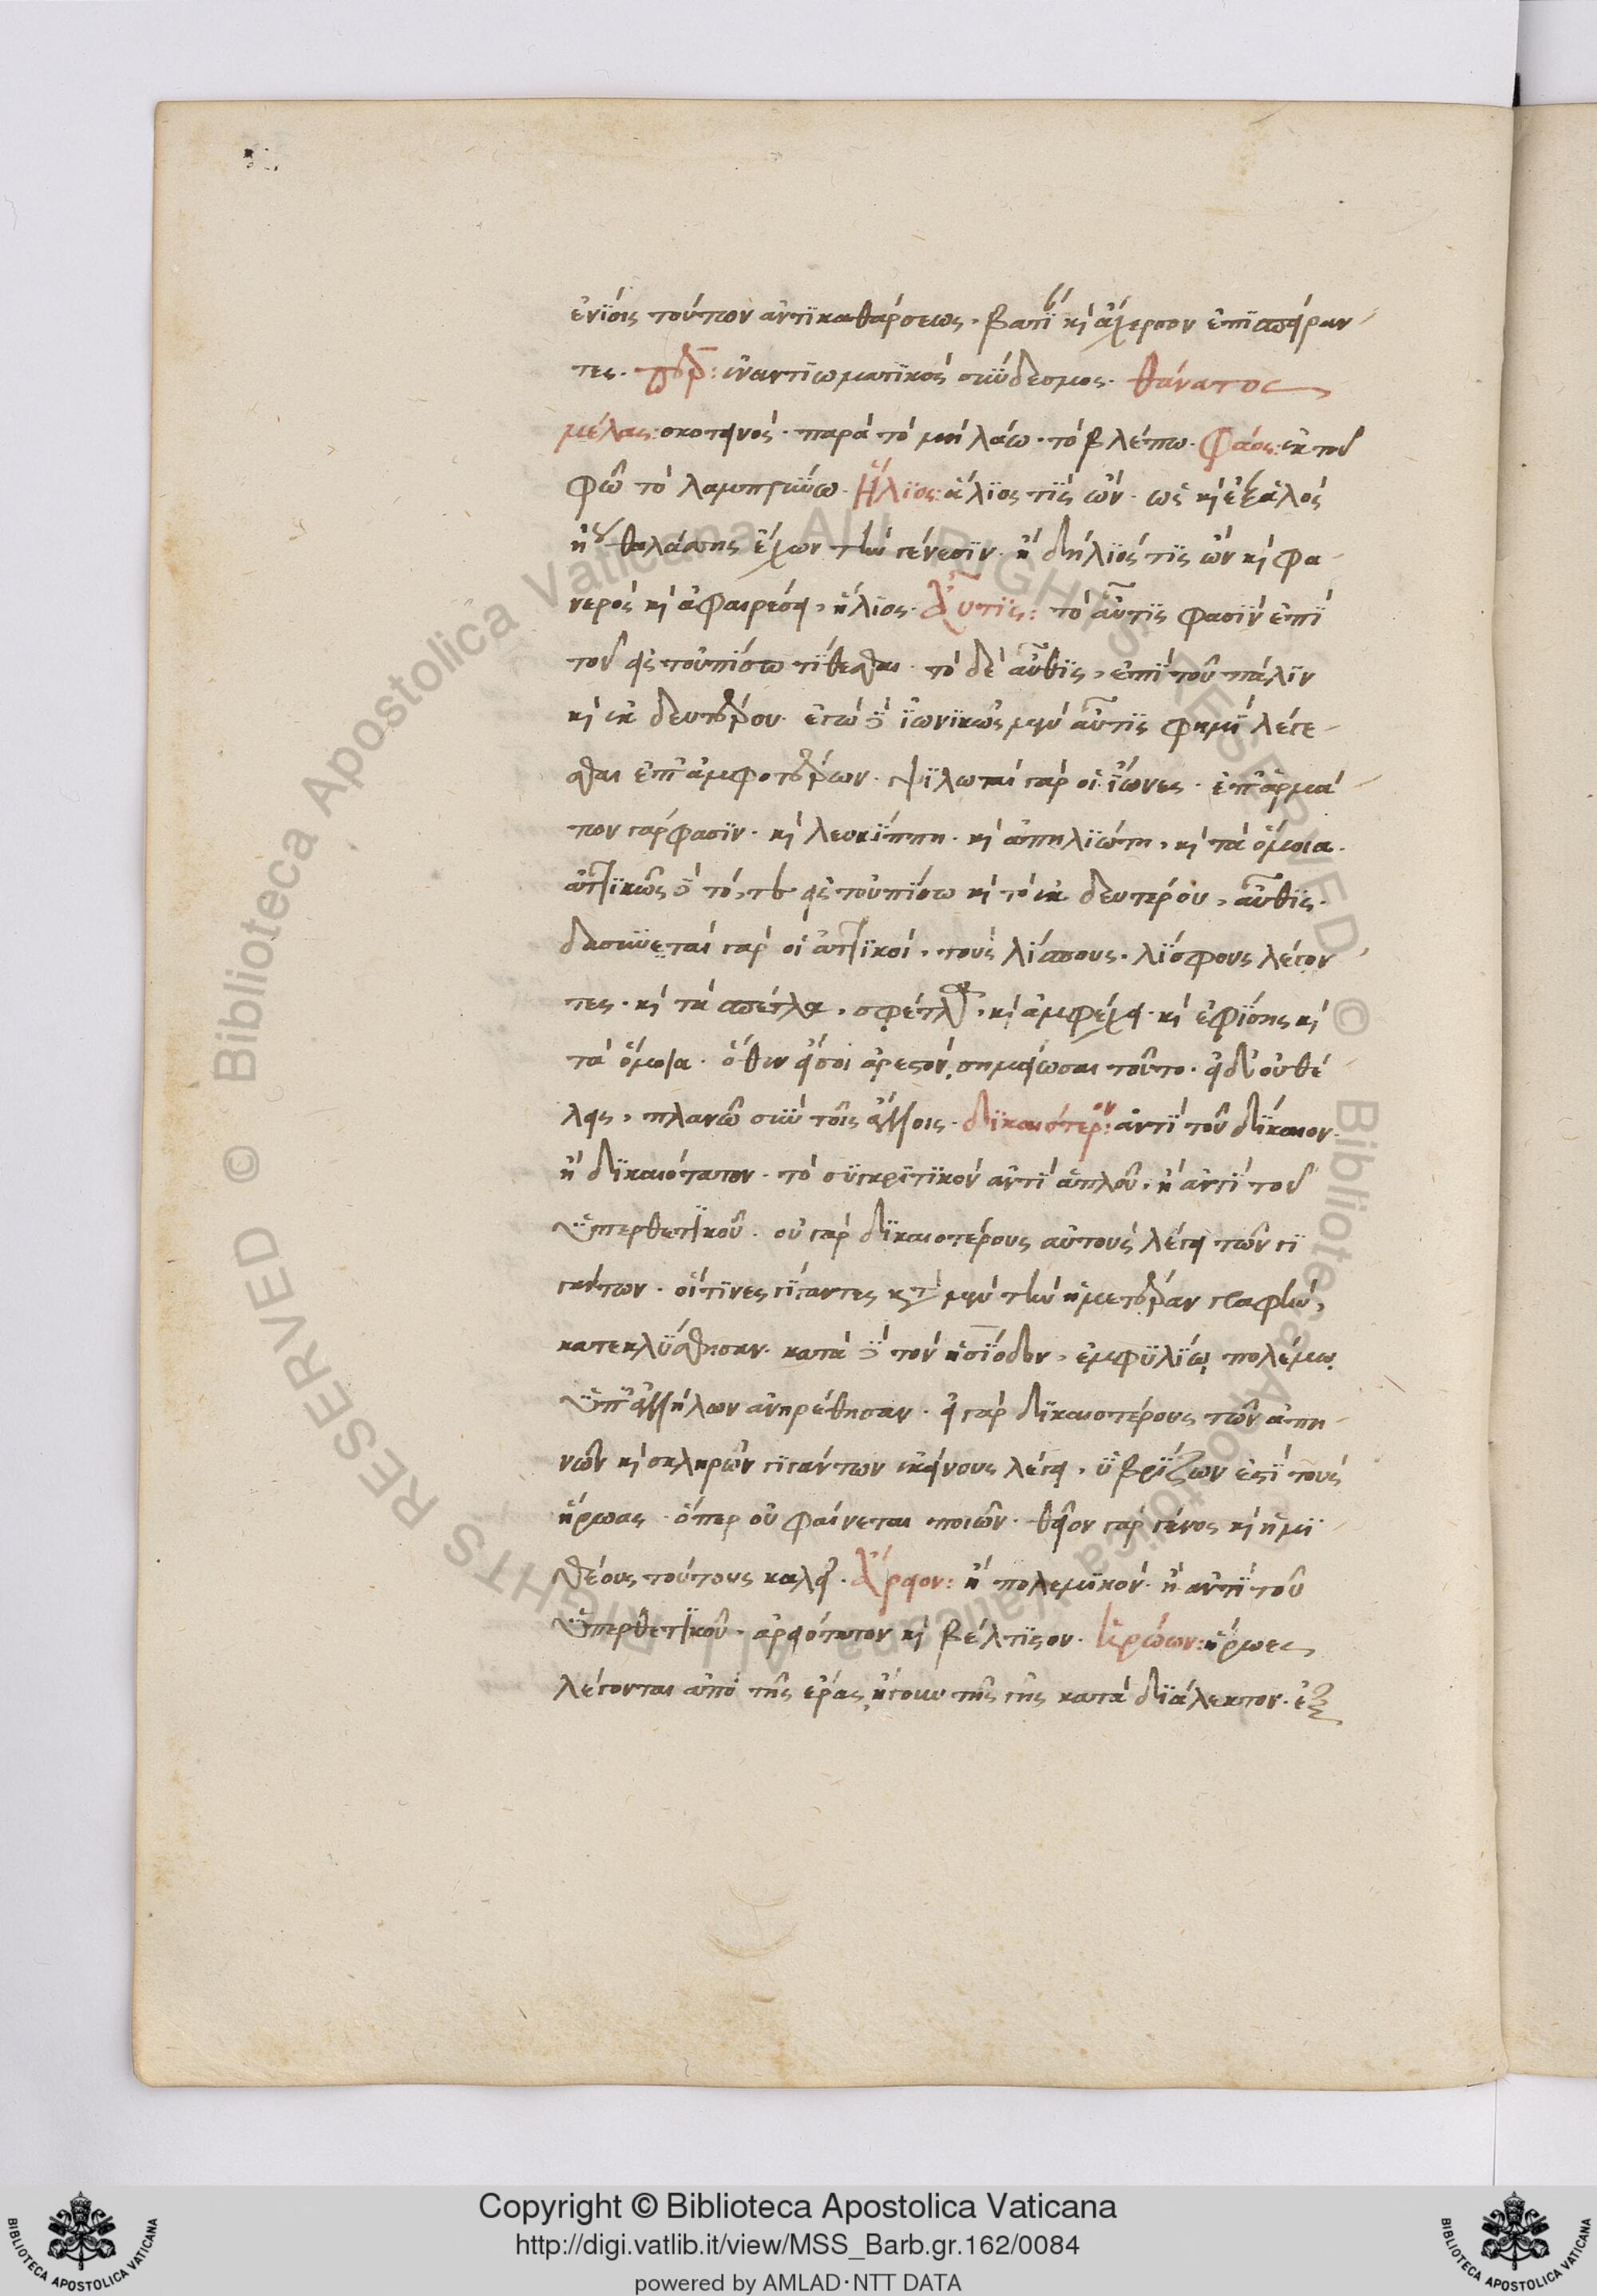 ἐνίοις τούτων ἀντικαθάρσεως. βατί καὶ ἄχερσον ἐπισπείραν-
τες. περ: ἐναντιωματικὸς σύνδεσμος. θάνατος
μέλας: σκοτεινός. παρὰ τὸ μὴ λάω. τὸ βλέπω. Φάος: ἐκ τοῦ
φῶ τὸ λαμπρύνω. Ἥλιος: ἅλιος τίς ὤν. ὡς καὶ ἐξ ἁλὸς
ἢ θαλάσσης ἔχων τὴν γένεσιν. ἢ δήλιός τις ὢν καὶ φα-
νερὸς καὶ ἀφαιρέσει, ἥλιος. Αὖτις: τὸ αὖτις φασὶν ἐπὶ
τοῦ εἰς τοὐπίσω τίθεσθαι. τὸ δὲ αὖθις, ἐπὶ τοῦ πάλιν
καὶ ἐκ δευτέρου. ἐγὼ δὲ ἰωνικῶς μὲν αὖτις φημὶ λέγε-
σθαι ἐπ' ἀμφοτέρων. ψιλωταὶ γὰρ οἱ ἴωνες. ἐπ' ἁρμά
των γάρ φασιν. καὶ λευκίππη. καὶ ἀπηλιώτη, καὶ τὰ ὅμοια.
ἀττικῶς δὲ τό, τε εἰς τοὐπίσω καὶ τὸ ἐκ δευτέρου, αὖθις.
δασυνεταὶ γὰρ οἱ ἀττικοί, τοὺς λίσπους. λίσφους λέγον
τες. καὶ τὰ σπέτλα, σφέτλα, καὶ ἀμφέχει. καὶ ἐφίσης καὶ
τὰ ὅμοια. ὅθεν εἴ σοι ἀρεστὸν, σημείωσαι τοῦτο. εἰ δ' οὐ θέ
λεις, πλανῶ σὺν τοῖς ἄλλοις. δικαιότερον: ἀντὶ τοῦ δίκαιον.
ἢ δικαιότατον. τὸ συγκριτικὸν ἀντὶ ἁπλοῦ, ἢ ἀντὶ τοῦ
ὑπερθετικοῦ. οὐ γὰρ δικαιοτέρους αὐτοὺς λέγει τῶν γι
γάντων. οἵτινες γίγαντες κατὰ μὲν τὴν ἡμετέραν γραφὴν,
κατεκλύσθησαν. κατὰ δὲ τὸν ἡσίοδον, ἐμφυλίῳ πολέμῳ
ὑπ' ἀλλήλων ἀνῃρέθησαν. εἰ γὰρ δικαιοτέρους τῶν ἀπη-
νῶν καὶ σκληρῶν γιγάντων ἐκείνους λέγει, ὑβρίζων ἐστὶ τοὺς
ἥρωας. ὅπερ οὐ φαίνεται ποιῶν. θεῖον γὰρ γένος καὶ ἡμι-
θέους τούτους καλεῖ. Ἄρειον: ἢ πολεμικόν. ἢ ἀντὶ τοῦ
ὑπερθετικοῦ. ἀρειότατον καὶ βέλτιστον. Ἡρώων: ἥρωες
λέγονται ἀπὸ τῆς ἐρας, ἤγουν τῆς γῆς κατὰ διάλεκτον. ἐξ
Copyright © Biblioteca Apostolica Vaticana
http://digi.vatlib.it/view/MSS_Barb.gr.162/0084
powered by AMLAD·NTT DATA